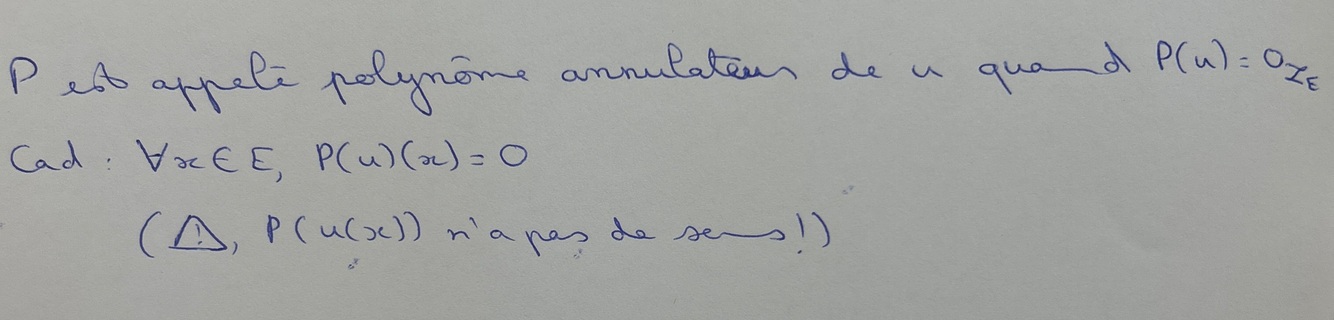 P est appelé polynôme annulateur de u quand P(u) = 0_{ℒ_E}
Cad : ∀x ∈ E, P(u)(x) = 0
(⚠, P(u(x)) n'a pas de sens!)